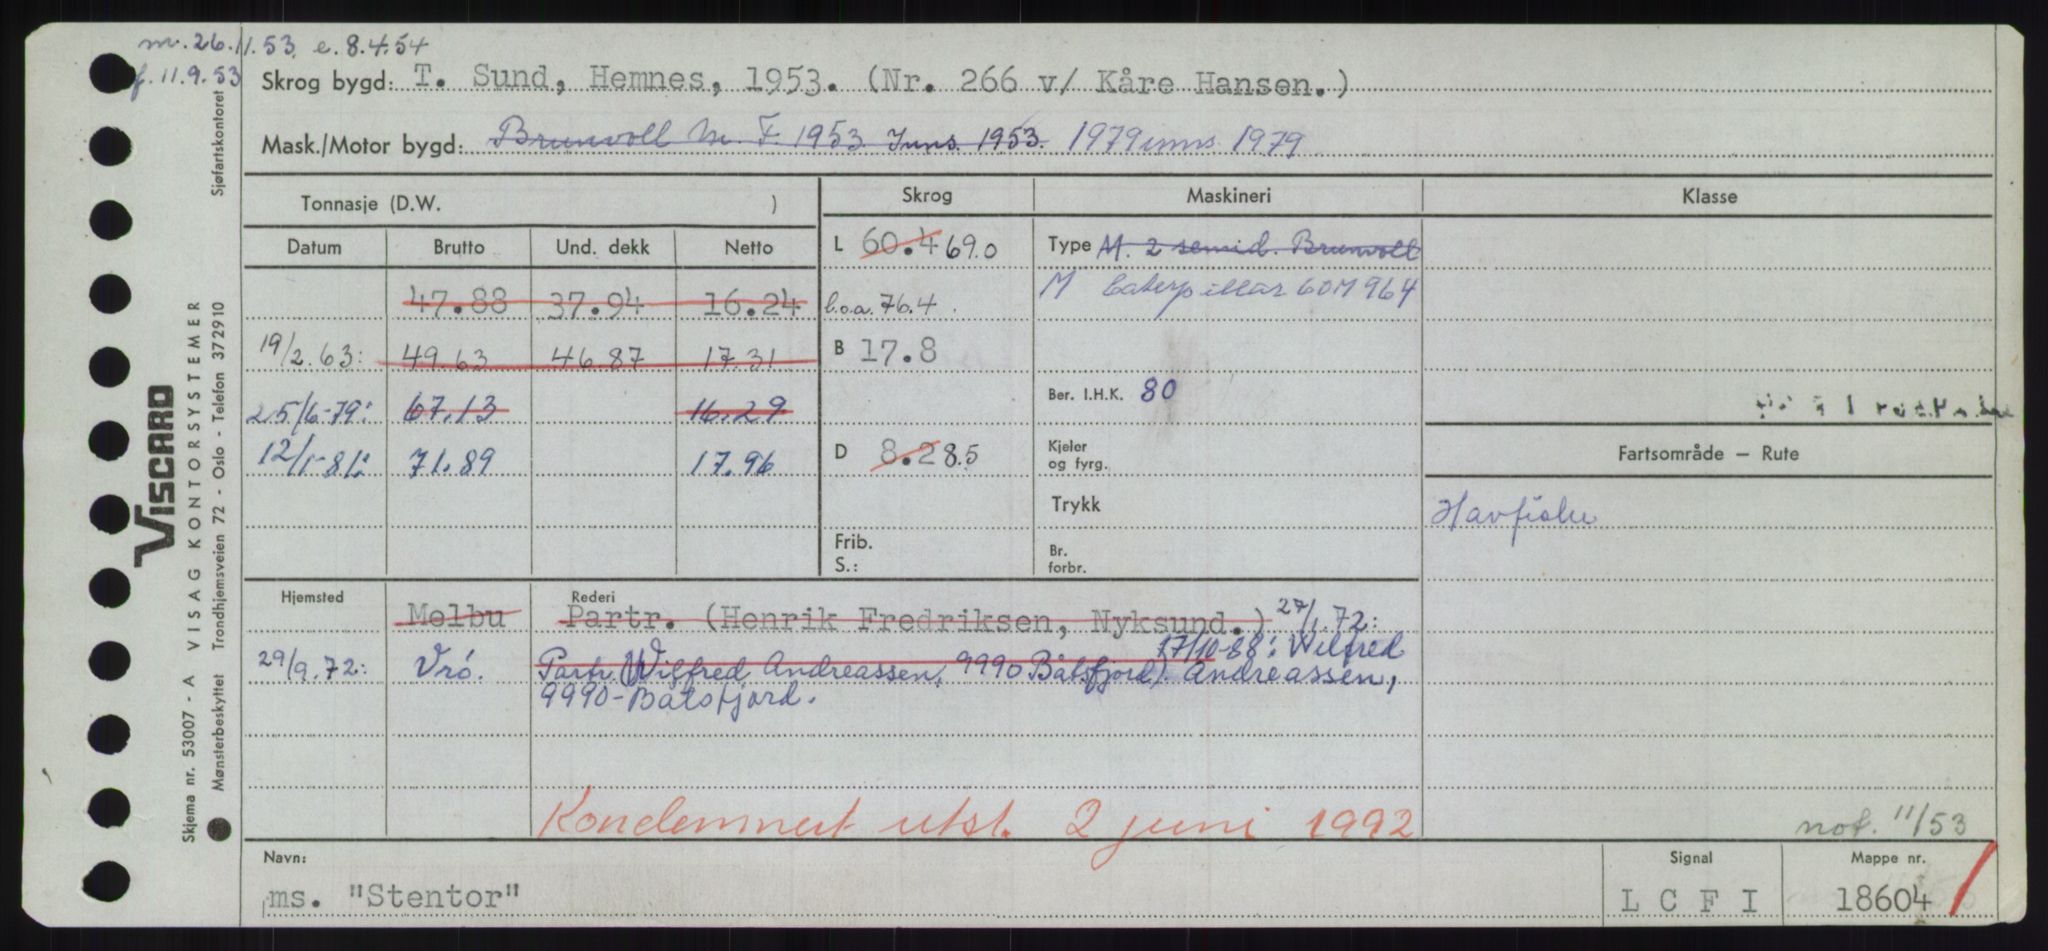 m. 26.11.53. e. 8.4.54
f. 11.9.53
Skrog bygd: T. Sund, Hemnes, 1953. (Nr. 266 v/ Kåre Hansen.)
Mask./Motor bygd: Brunvoll M. F. 1953 Inns. 1953. 1979 inns. 1979
Tonnasje (D.W. )
Datum Brutto Und. dekk Netto
47.88 37.94 16.24
19/2.63: 49.63 46.87 17.31
25/6-79: 67.13 16.29
12/1-81: 71.89 17.96
Skrog
L 60.4 69.0
l.o.a. 76.4
B 17.8
D 8.2 8.5
Frib.
S.:
Maskineri
Type M. 2 semid. Brunvoll
M Caterpillar
Ber. I.H.K. 80
Kjeler
og fyrg.
Trykk
Br.
forbr.
Klasse
Fartsområde – Rute
Havfiske
Hjemsted Rederi
Melbu Partr. (Henrik Fredriksen, Nyksund.) 27/1.72:
17/10-88: Wilfred
29/9.72: Vrö. Partr. (Wilfred Andreassen, 9990 Båtsfjord). Andreassen,
9990-Båtsfjord.
Kondemnert utst. 2 juni 1992
not. 11/53
Navn: Signal Mappe nr.
ms. "Stentor" L C F I 18604
Skjema nr. 53007 - A VISAG KONTORSYSTEMER
Mønsterbeskyttet Trondhjemsveien 72 - Oslo - Telefon 372910
Sjøfartskontoret
VISCARD